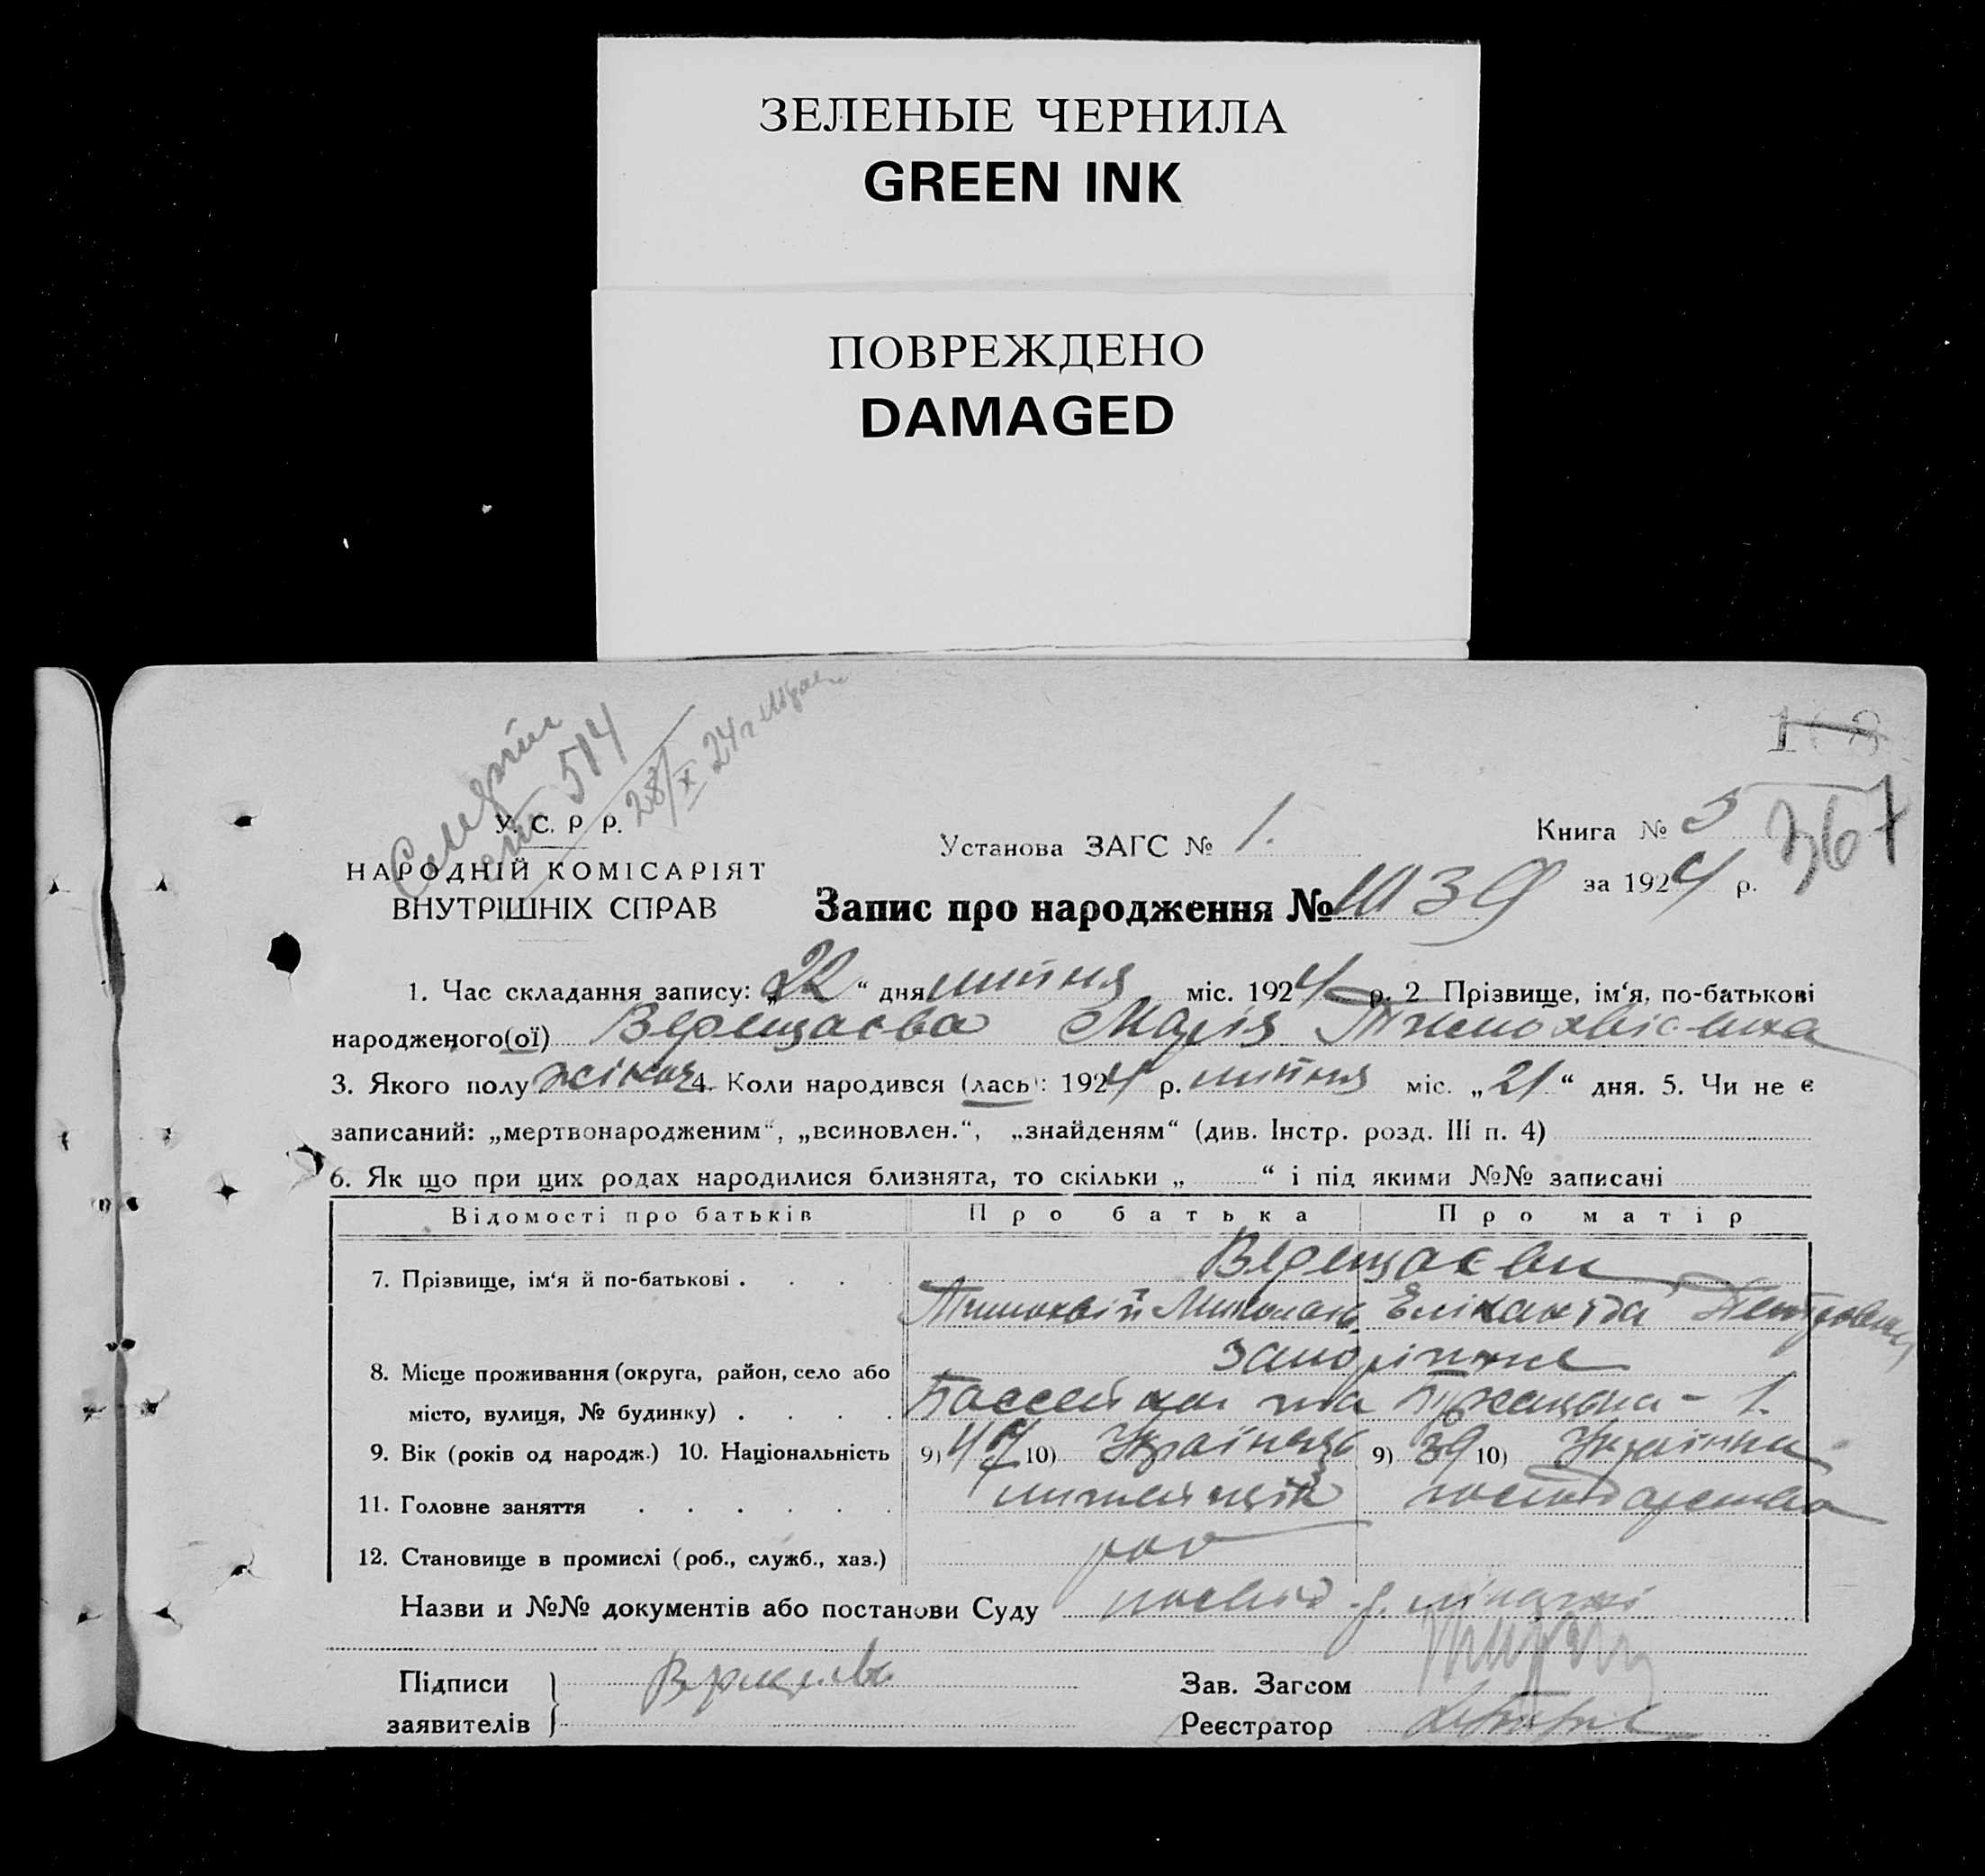 ЗЕЛЕНЫЕ ЧЕРНИЛА
GREEN INK
ПОВРЕЖДЕНО
DAMAGED
514
28/X 24 г.
168
367
У. С. Р. Р.
НАРОДНІЙ КОМІСАРІЯТ
ВНУТРІШНІХ СПРАВ
Установа ЗАГС № 1.
Книга № 5
за 1924 р.
Запис про народження № 1039
1. Час складання запису: „22“ дня липня міс. 1924 р. 2 Прізвище, ім‘я, по-батькові
народженого(ої) Верещаєва Марія Тимохвієвна
3. Якого полу жіноч 4. Коли народився (лась): 1924 р. липня міс. „21“ дня. 5. Чи не є
записаний: „мертвонародженим“, „всиновлен.“, „знайденям“ (див. Інстр. розд. III п. 4)
6. Як що при цих родах народилися близнята, то скільки „ “ і під якими №№ записані
Відомості про батьків Про батька Про матір
7. Прізвище, ім‘я й по-батькові . . . . Верещаєви
Тимохвій Миколаєв. Єліканіда Петровна
8. Місце проживання (округа, район, село або Запоріжжє
місто, вулиця, № будинку) . . . . Бассейная та – 1.
9. Вік (років од народж.) 10. Національність 9) 47 10) Українець 9) 39 10) Українка
11. Головне заняття . . . . . . господарство
12. Становище в промислі (роб., служб., хаз.) роб
Назви и №№ документів або постанови Суду посвід.
Підписи
заявителів
Зав. Загсом
Реєстратор